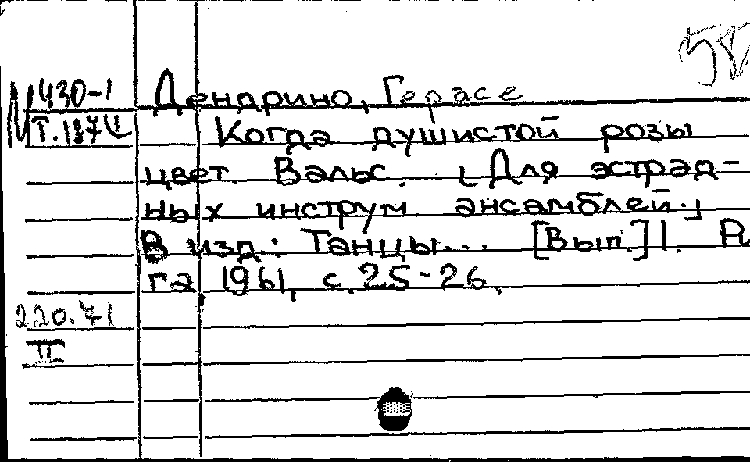 58
М 430-1 Дендрино, Герасе
Т.1374 Когда душистой розы
цвет. Вальс. [Для эстрад-
ных инструм ансамблей.]
В изд: Танцы... [Вып.] 1. Ри
га, 1961, с. 25-26.
220.71
II